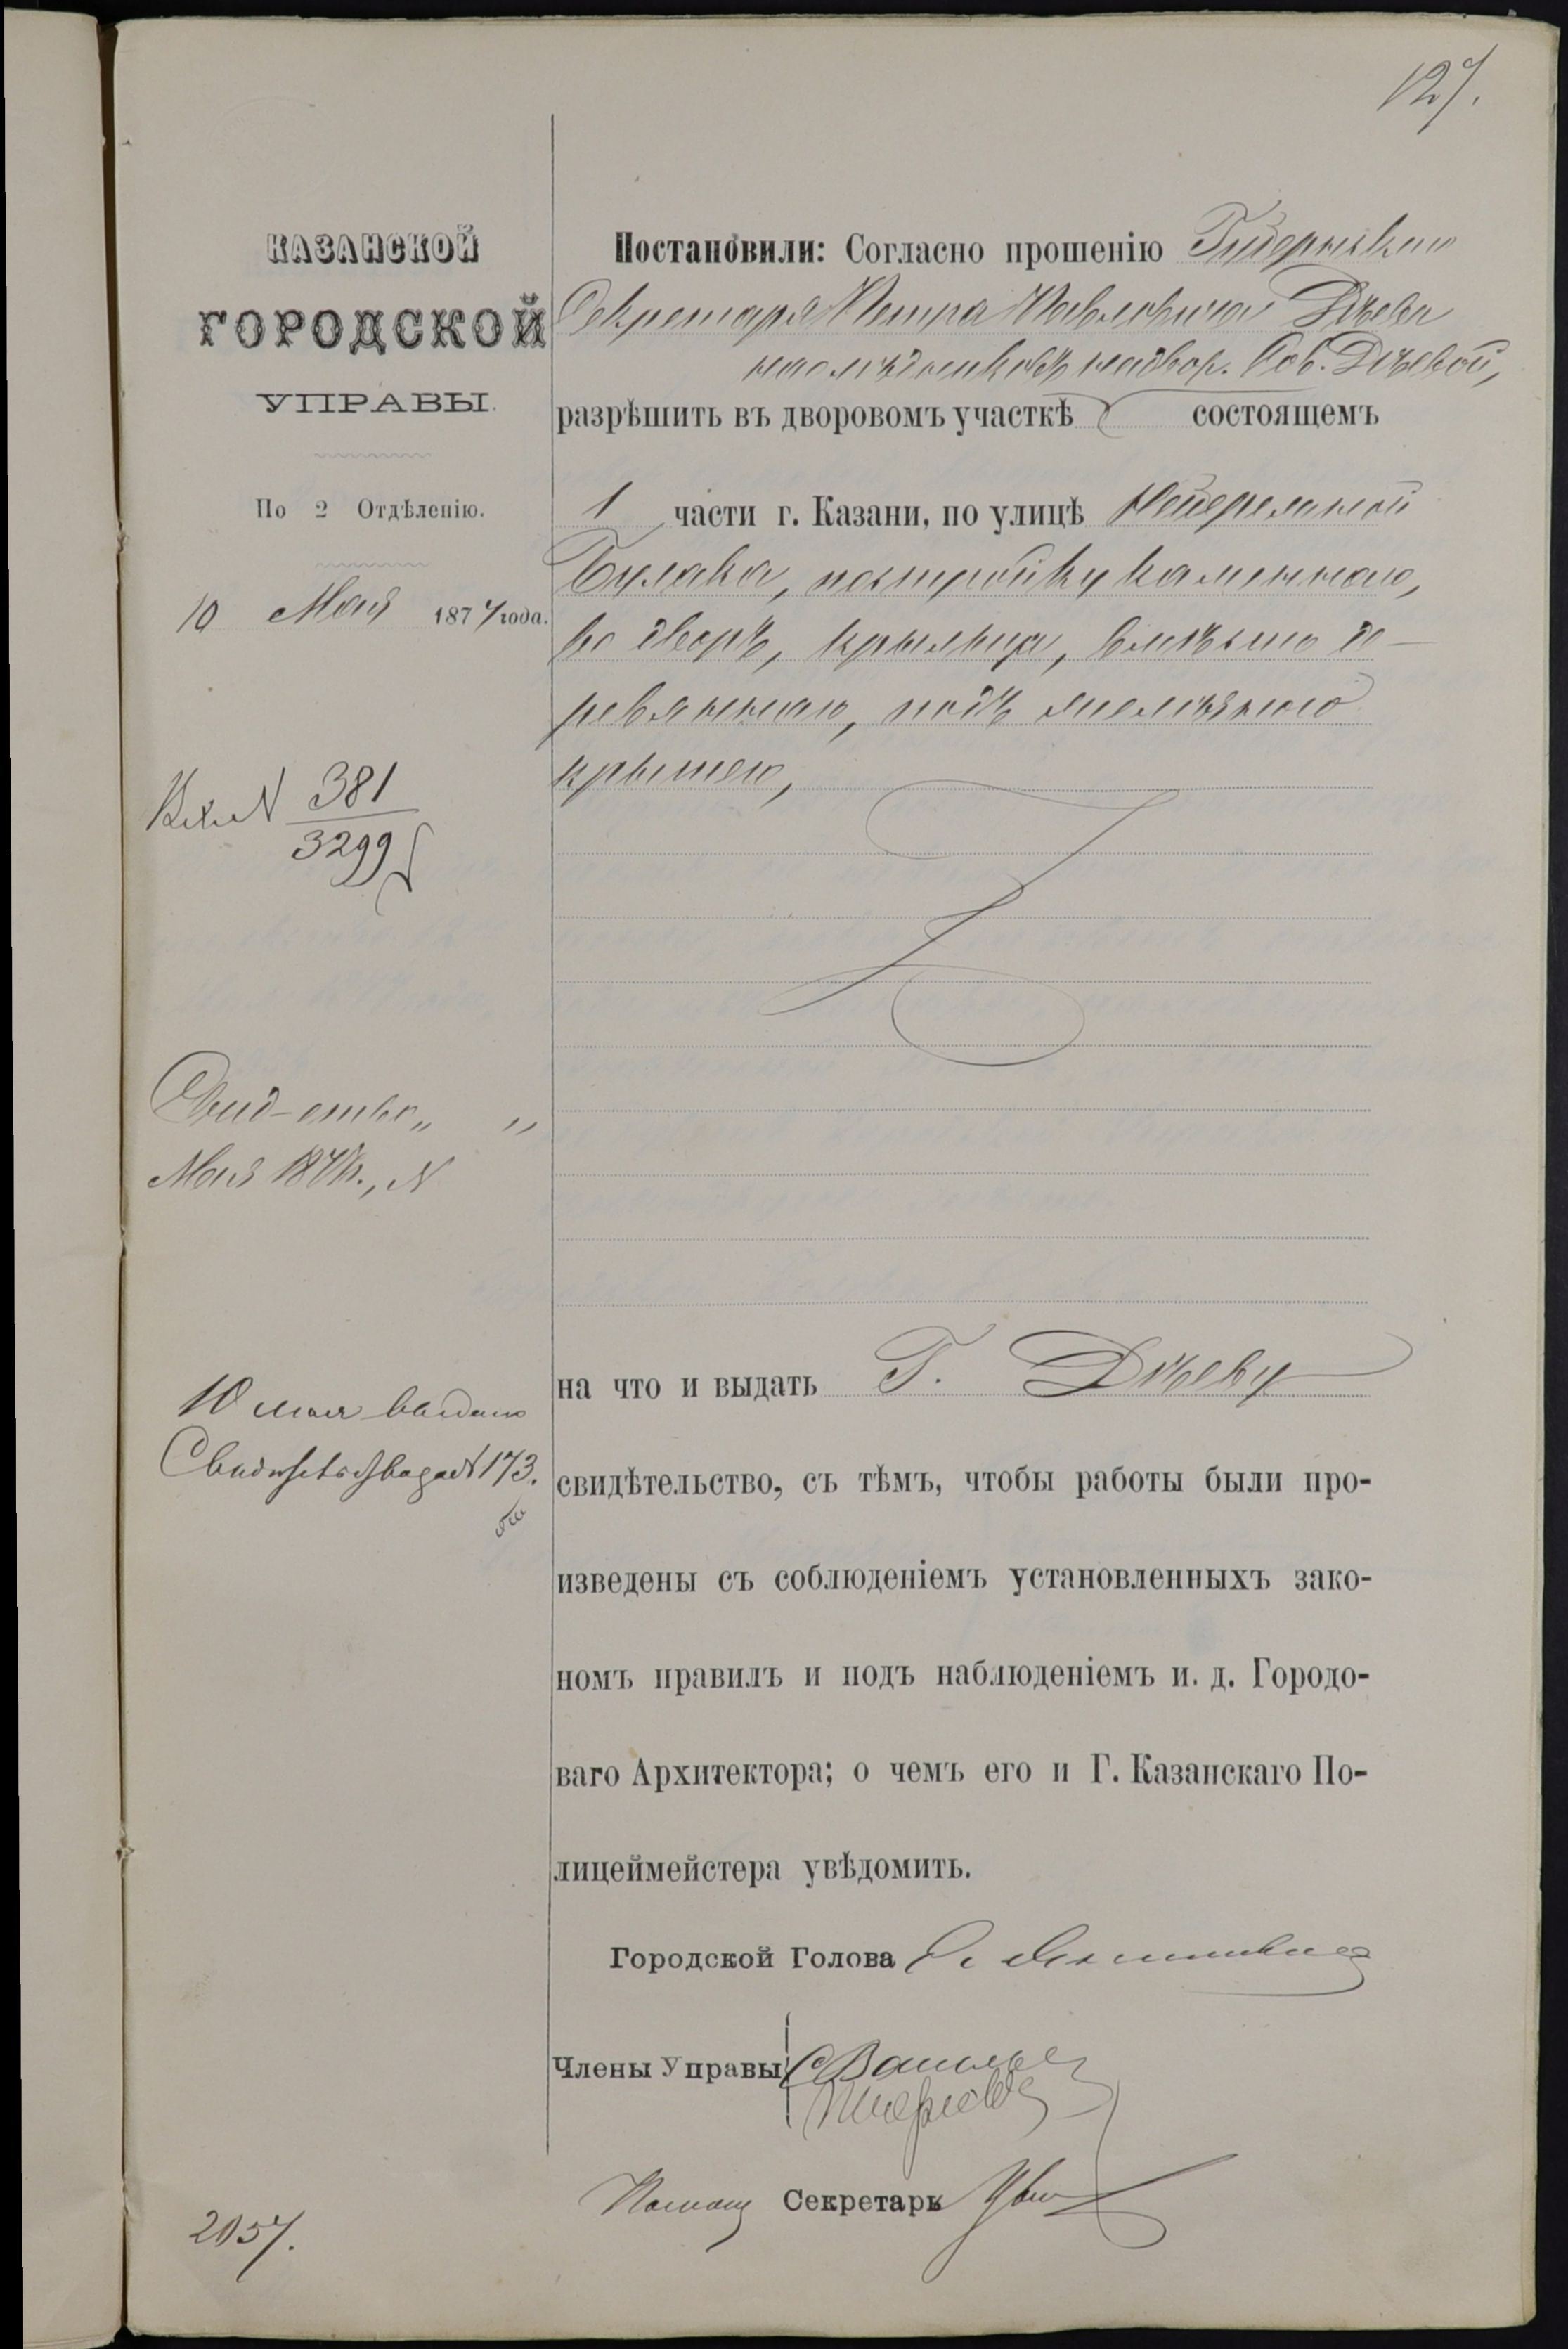 127.
КАЗАНСКОЙ
ГОРОДСКОЙ
УПРАВЫ.
По 2 Отдѣленію.
10 Мая 1877 года.
Вх. N 381
3299
Свид-ство „ „
Мая 1877г., N
10 мая выдано
Свидѣтельство за N 173.
2057.
Постановили: Согласно прошенію Губернскаго
Секретаря Петра Павловича Дѣева
наслѣдниковъ надвор. Сов. Дѣевой,
разрѣшить въ дворовомъ участкѣ состоящемъ
1 части г. Казани, по улицѣ
Булака, постройку каменнаго,
во дворѣ, крыльца, вмѣсто де-
ревяннаго, подъ желѣзною
крышею,
на что и выдать Г. Дѣеву
свидѣтельство, съ тѣмъ, чтобы работы были про-
изведены съ соблюденіемъ установленныхъ зако-
номъ правилъ и подъ наблюденіемъ и. д. Городо-
ваго Архитектора; о чемъ его и Г. Казанскаго По-
лицеймейстера увѣдомить.
Городской Голова
Члены Управы
Помощ Секретарь